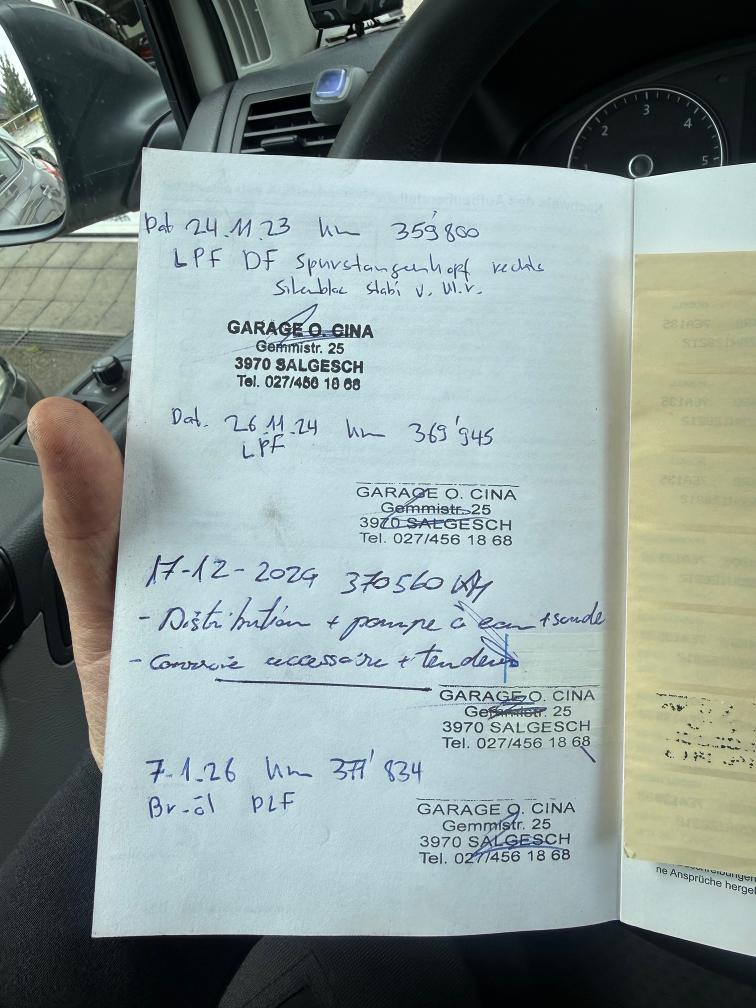 Dat 24.11.23 km 359'800
LPF DF Spurstangenkopf rechts
Silenbloc stabi v. l+r.
GARAGE O. CINA
Gemmistr. 25
3970 SALGESCH
Tel. 027/456 18 68
Dat. 26.11.24 km 369'945
LPF
GARAGE O. CINA
Gemmistr. 25
3970 SALGESCH
Tel. 027/456 18 68
17-12-2024 370560 KM
- Distribution + pompe à eau + sonde
- Courroie accessoire + tendeur
GARAGE O. CINA
Gemmistr. 25
3970 SALGESCH
Tel. 027/456 18 68
7.1.26 km 377'834
Br-öl PLF
GARAGE O. CINA
Gemmistr. 25
3970 SALGESCH
Tel. 027/456 18 68
ne Ansprüche
2
3
4
5